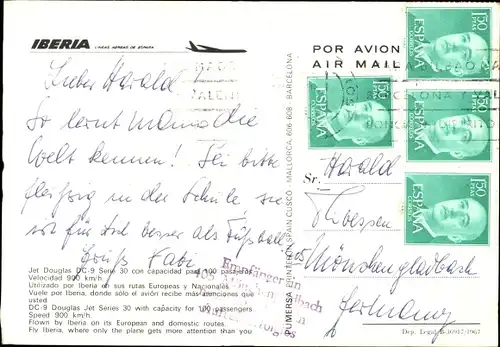 IBERIA LINEAS AEREAS DE ESPAÑA
POR AVION
AIR MAIL
Lieber Harald
So lernt Mama die
Welt kennen! Sei bitte
fleissig in der Schule sie
für dich besser als Fußball
Gruß
Jet Douglas DC-9 Serie 30 con capacidad para 100 pasajeros
Velocidad 900 km/h.
Utilizado por Iberia en sus rutas Europeas y Nacionales
Vuele por Iberia, donde sólo el avión recibe más atenciones que
usted
DC-9 Douglas Jet Series 30 with capacity for 100 passengers
Speed 900 km/h.
Flown by Iberia on its European and domestic routes.
Fly Iberia, where only the plane gets more attention than you
PUMERSA PRINTER IN SPAIN CUSCO - MALLORCA, 606-608 - BARCELONA
Empfänger in
405 Mönchengladbach
150 PTAS
ESPAÑA
CORREOS
150 PTAS
ESPAÑA
CORREOS
150 PTAS
ESPAÑA
CORREOS
150 PTAS
ESPAÑA
CORREOS
Sr. Harald
405
Mönchengladbach
Germany
Dep. Legal B-10917/1967